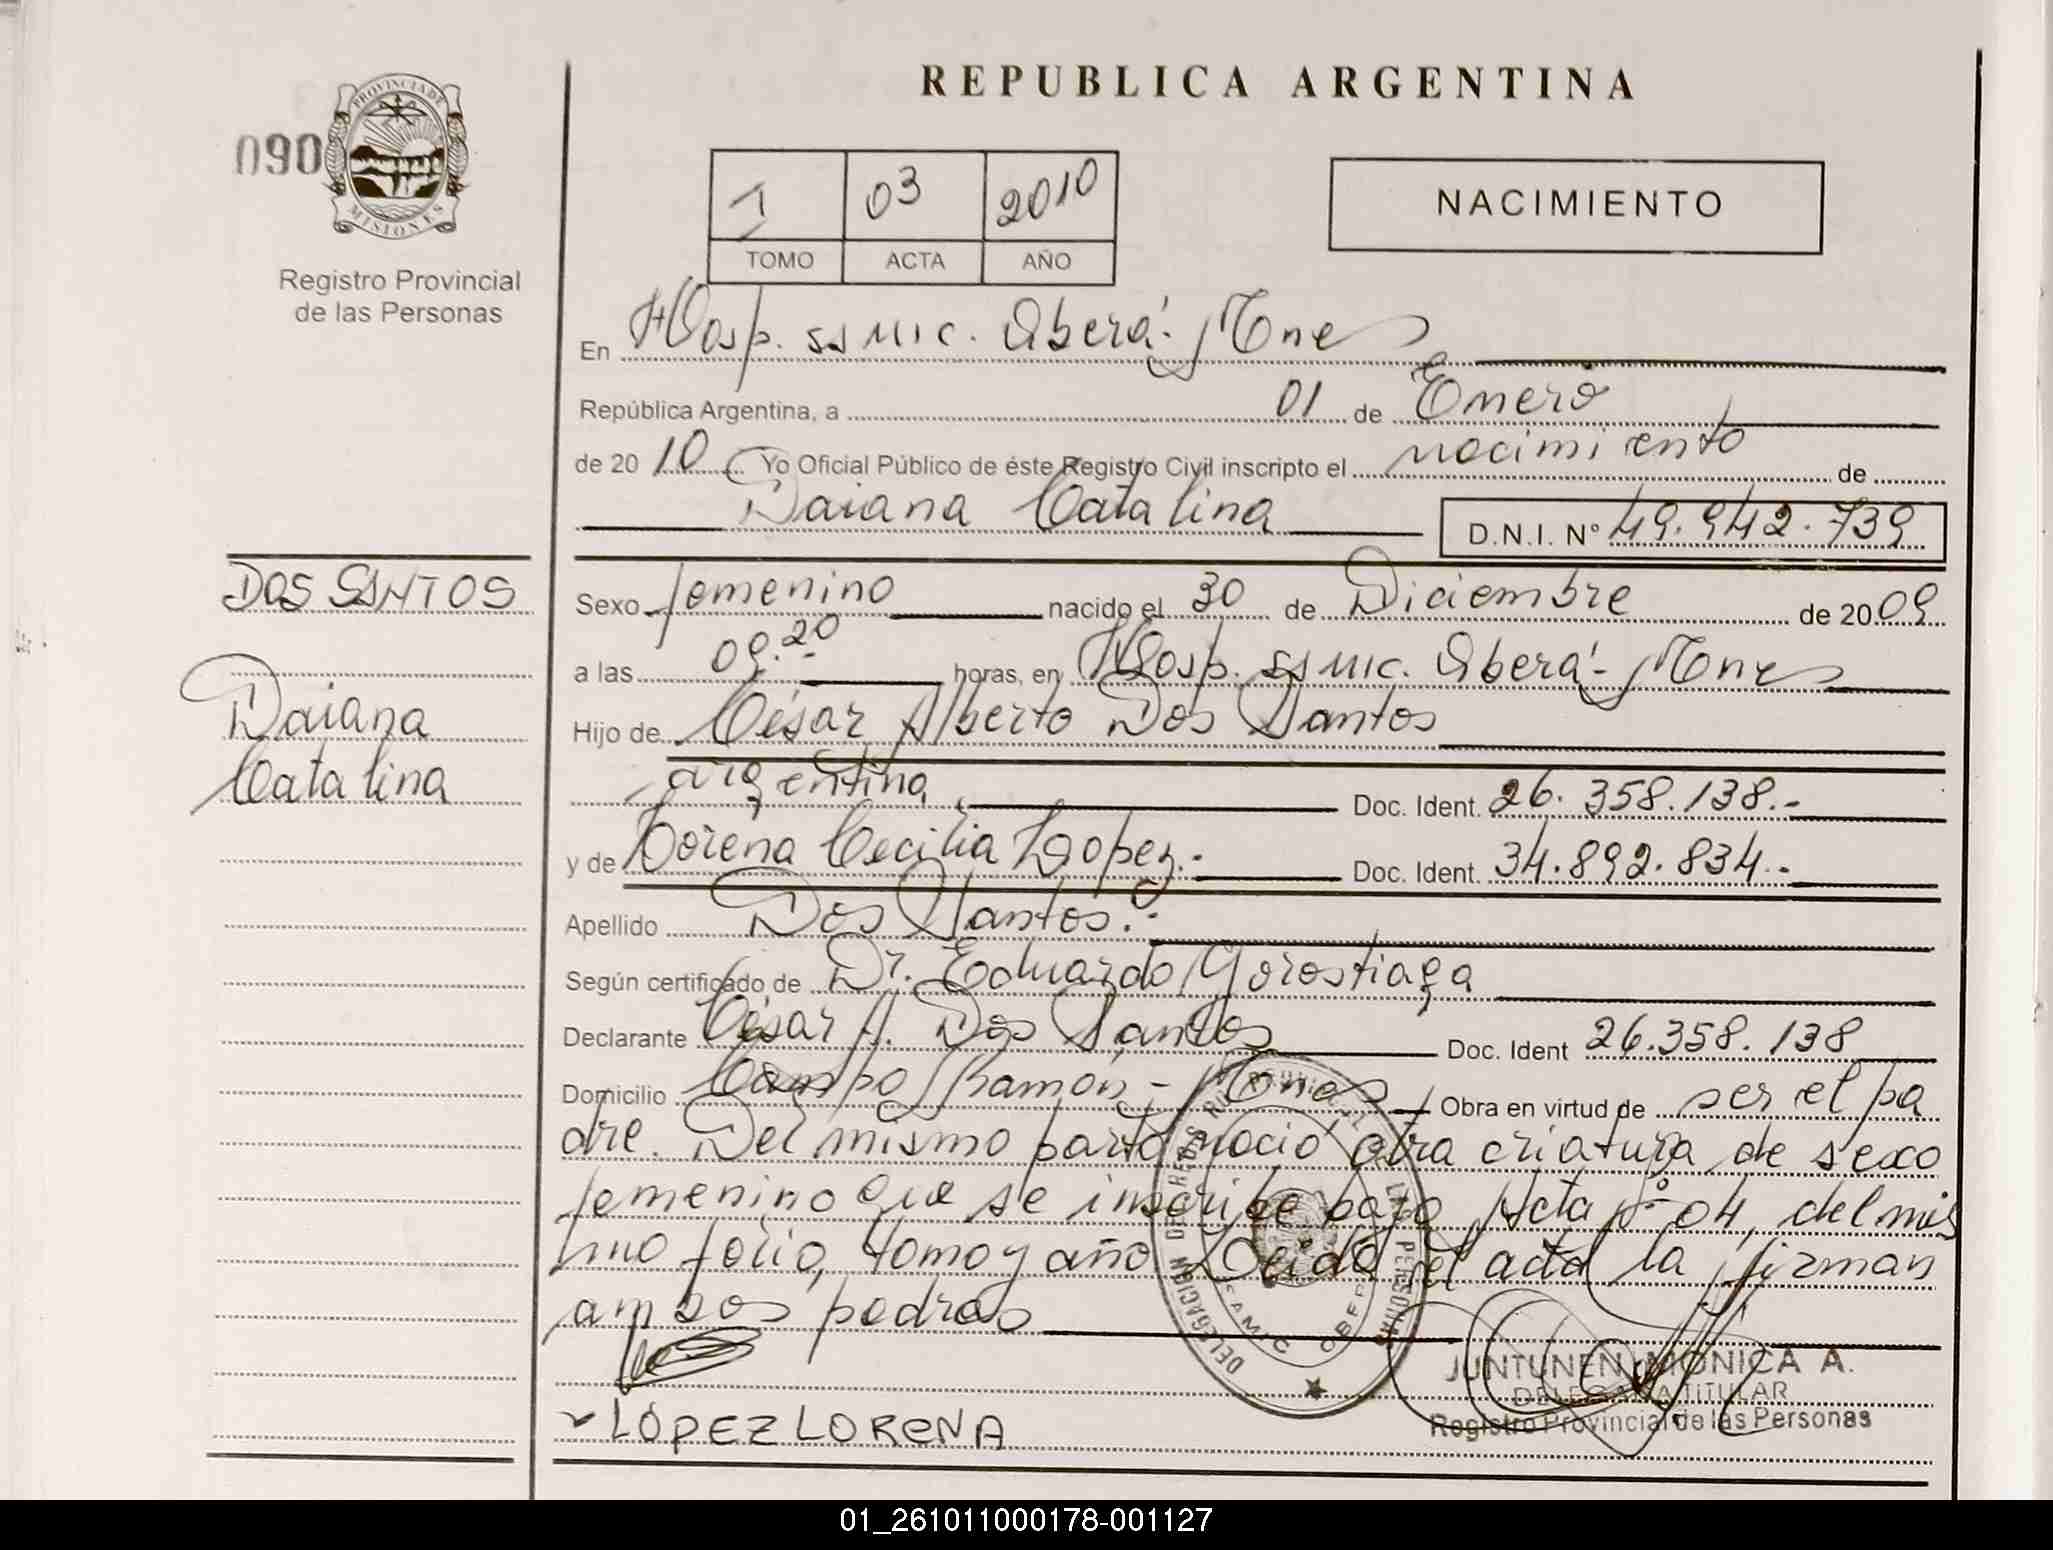 REPUBLICA ARGENTINA
090
PROVINCIA DE
MISIONES
Registro Provincial
de las Personas
1 03 2010
TOMO ACTA AÑO
NACIMIENTO
En Hosp. ss mic. Oberá - Mnes
República Argentina, a 01 de Enero
de 20 10 Yo Oficial Público de éste Registro Civil inscripto el nacimiento de
Daiana Catalina D.N.I. Nº 49.942.739
DOS SANTOS
Daiana
Catalina
Sexo femenino nacido el 30 de Diciembre de 20 09
a las 09.20 horas, en Hosp. ss mic. Oberá - Mnes
Hijo de César Alberto Dos Santos
argentina Doc. Ident. 26.358.138.-
y de Lorena Cecilia Lopez.- Doc. Ident. 34.892.834.-
Apellido Dos Santos.-
Según certificado de Dr. Eduardo Gorostiaga
Declarante César A. Dos Santos Doc. Ident 26.358.138
Domicilio Campo Ramón - Mnes Obra en virtud de ser el pa
dre. Del mismo parto nació otra criatura de sexo
femenino que se inscribe bajo Acta Nº 04, del mis
mo folio, tomo y año Leída el acta la firman
ambos padres
LÓPEZ LORENA
DELEGACIÓN DE LAS PERSONAS
SAMIC OBERA
JUNTUNEN MONICA A.
DELEGADA TITULAR
Registro Provincial de las Personas
01_261011000178-001127